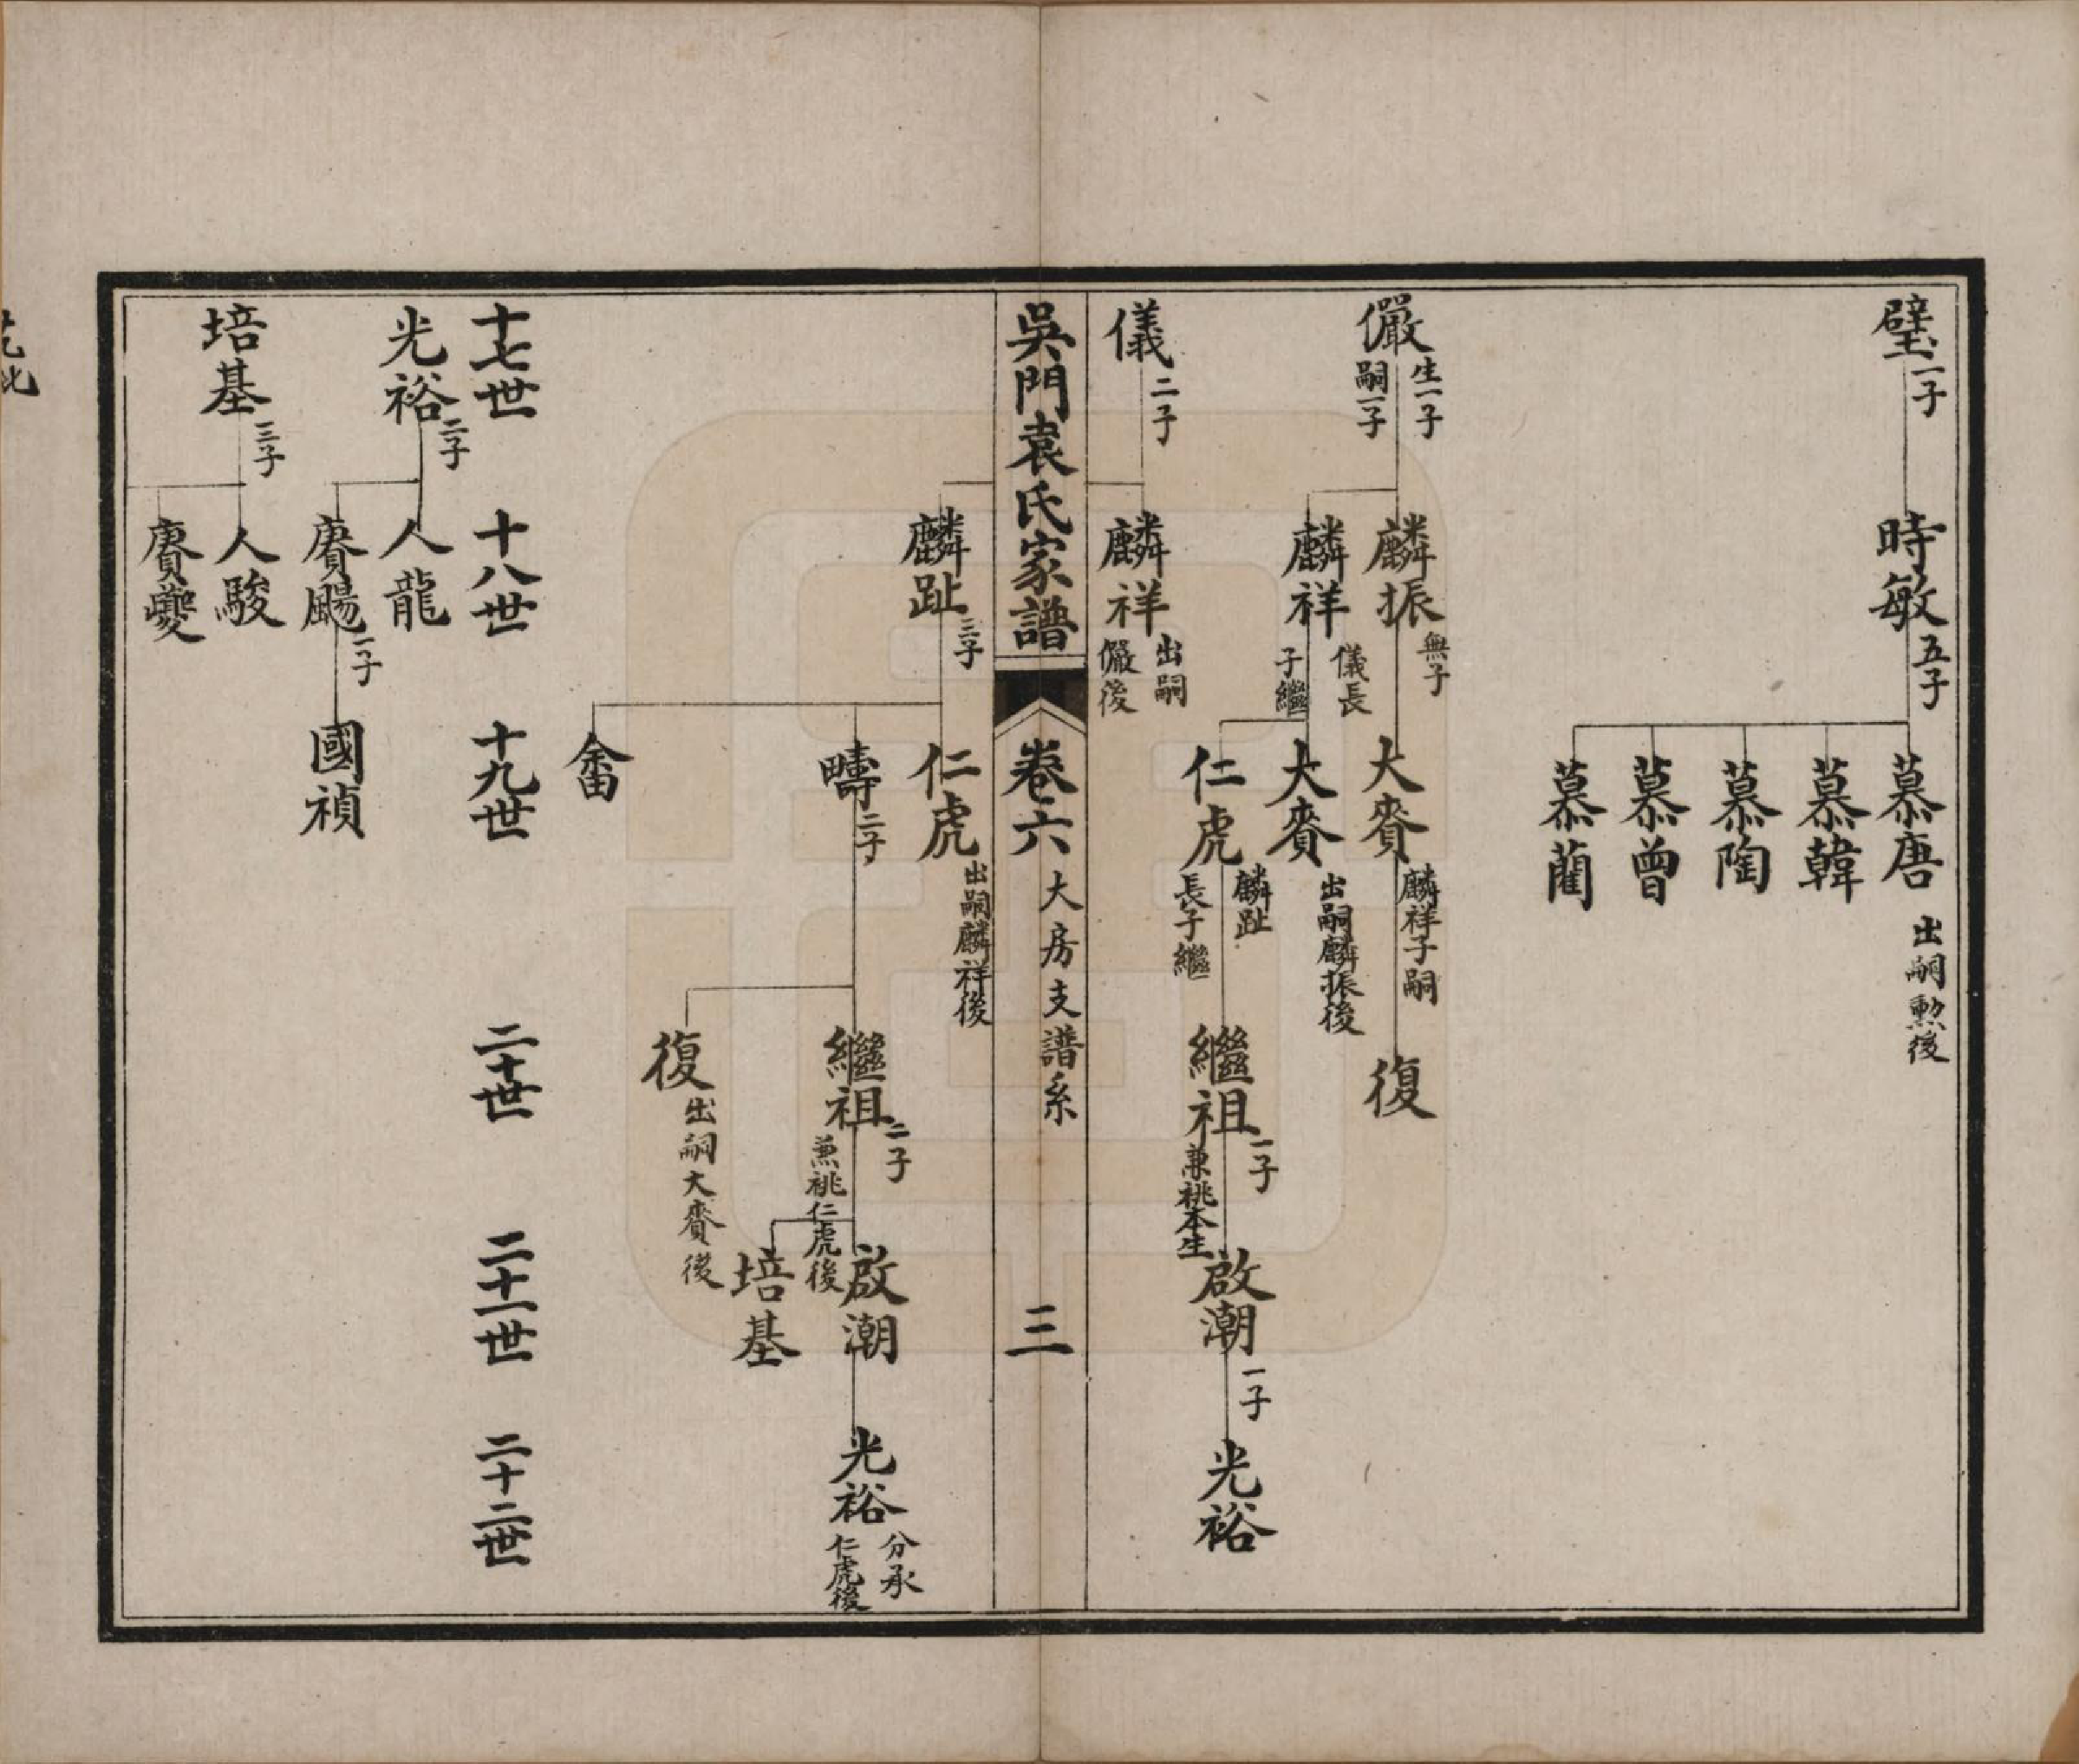 璧 一子
時敏 五子
慕唐 出嗣勲後
慕韓
慕陶
慕曾
慕藺
儼 生一子 嗣一子
麟振 無子
大賚 麟祥子嗣
復
麟祥 儀長子繼
大賚 出嗣麟振後
仁虎 麟趾長子繼
繼祖 一子 兼祧本生
啟潮 一子
光裕
儀 二子
麟祥 出嗣儼後
吳門袁氏家譜
卷六 大房支譜系
三
麟趾 三子
仁虎 出嗣麟祥後
疇 二子
繼祖 二子 兼祧仁虎後
啟潮
光裕 分承仁虎後
培基
復 出嗣大賚後
畬
十七世
十八世
十九世
二十世
二十一世
二十二世
光裕 二子
人龍
賡颺 一子
國禎
培基 三子
人駿
賡夔